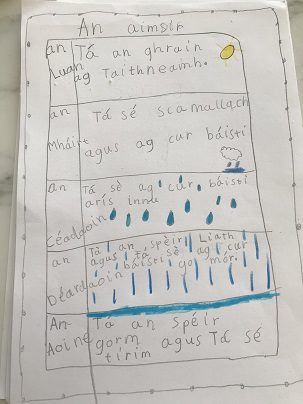 An aimsir
an Luan
Tá an ghrain
ag Taithneamh.
an Mháirt
Tá sé scamallach
agus ag cur báistí
an Céadaoin
Tá sè ag cur báisti
arís inniu
an Déardaoin
Tá an spèir Liath
agus tá sè ag cur
báistí go mór.
An Aoine
Tá an spéir
gorm agus Tá sé
tirim